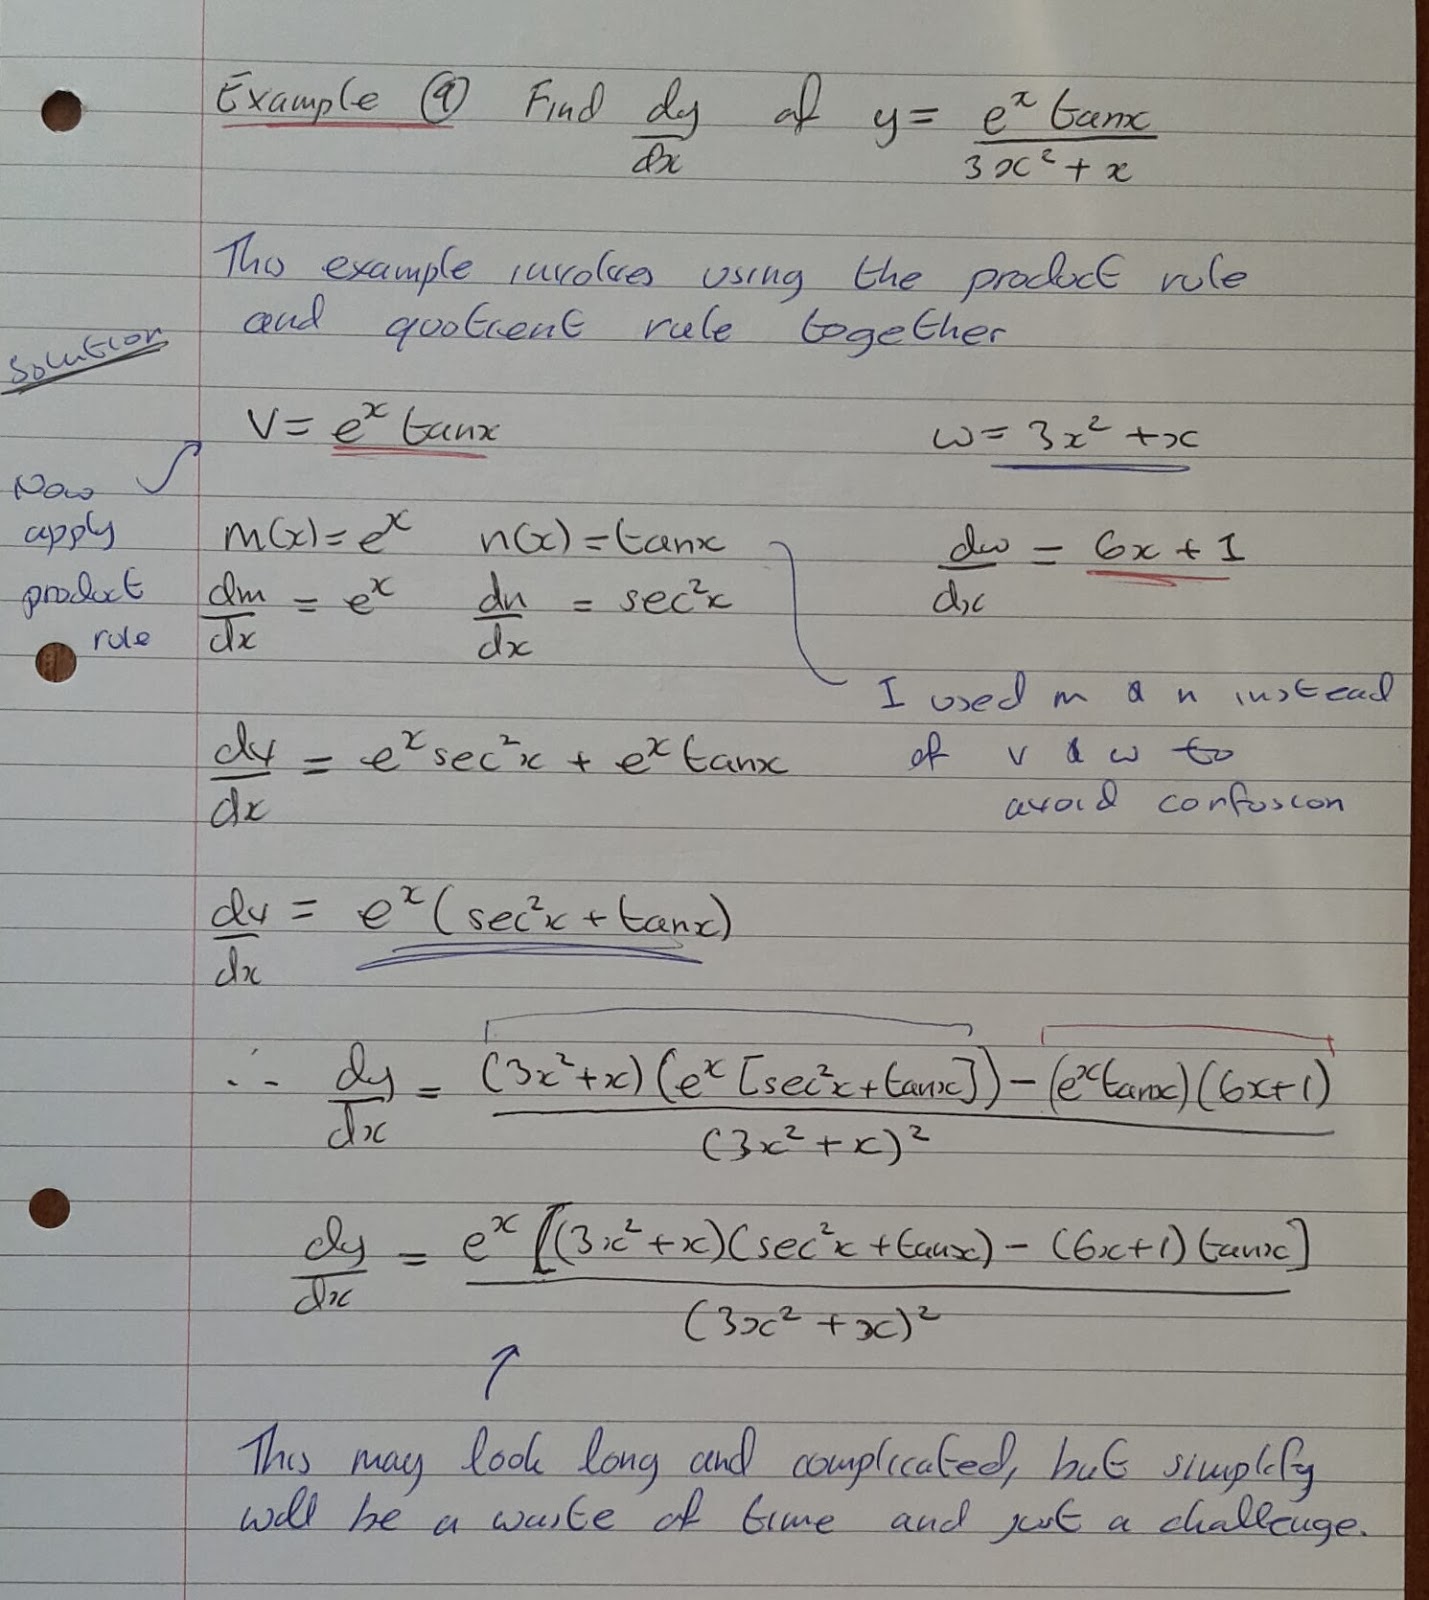 Example (9) Find dy/dx of y = e^x tanx / 3x² + x
This example involves using the product rule
and quotient rule together
Solution
V = e^x tanx
w = 3x² + x
Now
apply
product
rule
m(x) = e^x n(x) = tanx
dw/dx = 6x + 1
dm/dx = e^x dn/dx = sec²x
I used m & n instead
of v & w to
avoid confusion
dv/dx = e^x sec²x + e^x tanx
dv/dx = e^x (sec²x + tanx)
∴ dy/dx = (3x² + x)(e^x [sec²x + tanx]) − (e^x tanx)(6x+1) / (3x² + x)²
dy/dx = e^x [(3x² + x)(sec²x + tanx) − (6x+1) tanx] / (3x² + x)²
This may look long and complicated, but simplify
will be a waste of time and just a challenge.